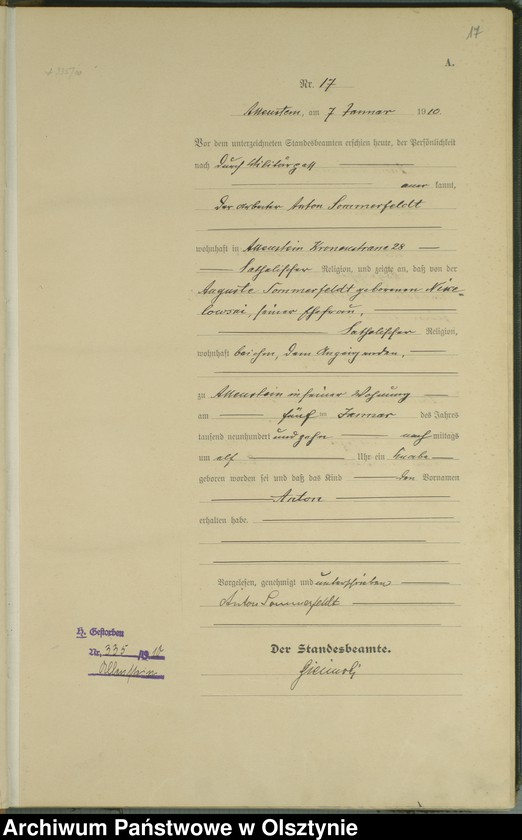 17
A.
Nr. 17
Allenstein, am 7 Januar 1910.
Vor dem unterzeichneten Standesbeamten erschien heute, der Persönlichkeit
nach durch Militärpaß
aner kannt,
der Arbeiter Anton Sommerfeldt
wohnhaft in Allenstein Kronenstrane 28
katholischer Religion, und zeigte an, daß von der
Auguste Sommerfeldt geborenen Nike-
lowski, seiner Ehefrau,
katholischer Religion,
wohnhaft bei ihm, dem Anzeigenden,
zu Allenstein in seiner Wohnung
am fünf = Januar des Jahres
tausend neunhundert und zehn nach mittags
um elf Uhr ein Knabe
geboren worden sei und daß das Kind den Vornamen
Anton
erhalten habe.
Vorgelesen, genehmigt und unterschrieben
Anton Sommerfeldt
Der Standesbeamte.
Gestorben
Nr. 335/1910
Allenstein
Archiwum Państwowe w Olsztynie